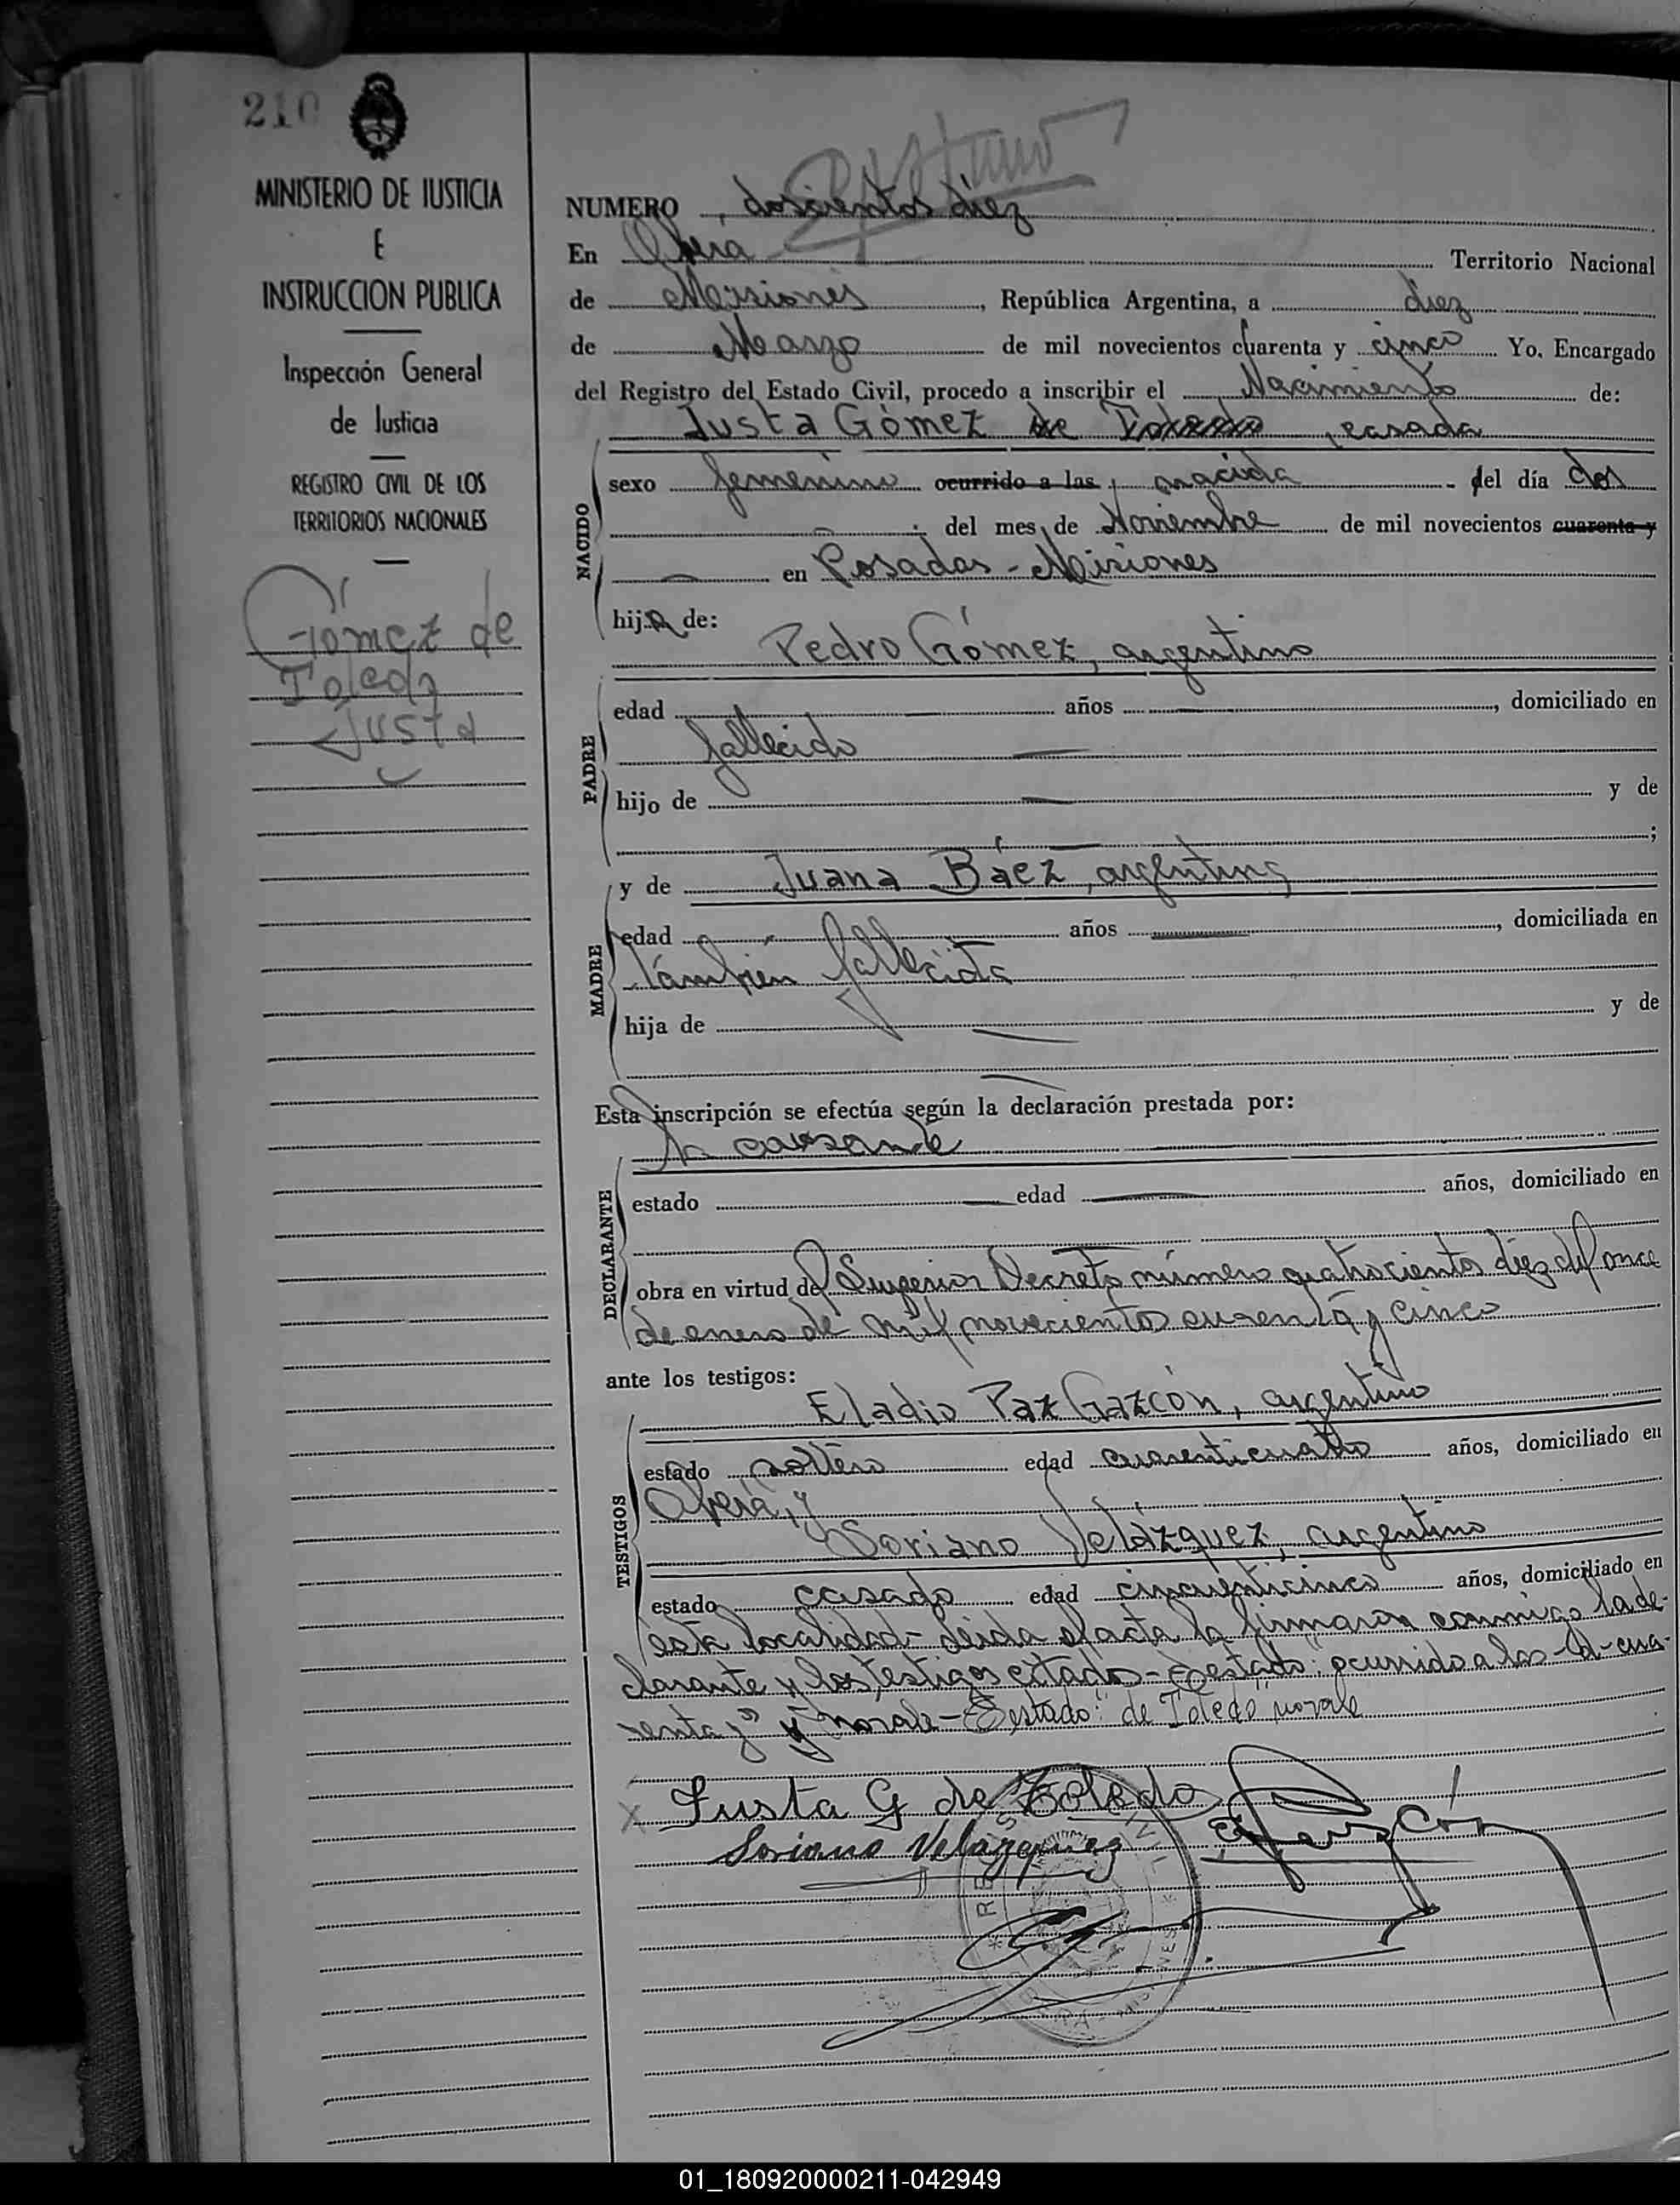 210
MINISTERIO DE JUSTICIA
E
INSTRUCCION PUBLICA
Inspección General
de Justicia
REGISTRO CIVIL DE LOS
TERRITORIOS NACIONALES
Gómez de
Toledo
Justa
NUMERO doscientos diez
En Oberá Territorio Nacional
de Misiones, República Argentina, a diez
de Marzo de mil novecientos cuarenta y cinco Yo, Encargado
del Registro del Estado Civil, procedo a inscribir el Nacimiento de:
Justa Gómez de Toledo, casada
NACIDO
sexo femenino ocurrido a las, nacida del día dos
del mes de Noviembre de mil novecientos cuarenta y
en Posadas - Misiones
hija de:
Pedro Gómez, argentino
PADRE
edad años, domiciliado en
fallecido
hijo de y de
;
MADRE
y de Juana Báez, argentina
edad años, domiciliada en
también fallecida
hija de y de
Esta inscripción se efectúa según la declaración prestada por:
la causante
DECLARANTE
estado edad años, domiciliado en
obra en virtud del Superior Decreto número cuatrocientos diez del once
de enero de mil novecientos cuarenta y cinco
ante los testigos:
TESTIGOS
Eladio Paz Gazcón, argentino
estado soltero edad cuarenticuatro años, domiciliado en
Oberá, y
Soriano Velázquez, argentino
estado casado edad cincuenticinco años, domiciliado en
esta localidad - leida el acta la firmaron conmigo la de-
clarante y los testigos citados - Testado: "ocurrido a las - cua-
renta y" no vale - Testado: "de Toledo" no vale
X Justa G de Toledo
Soriano Velázquez
01_180920000211-042949